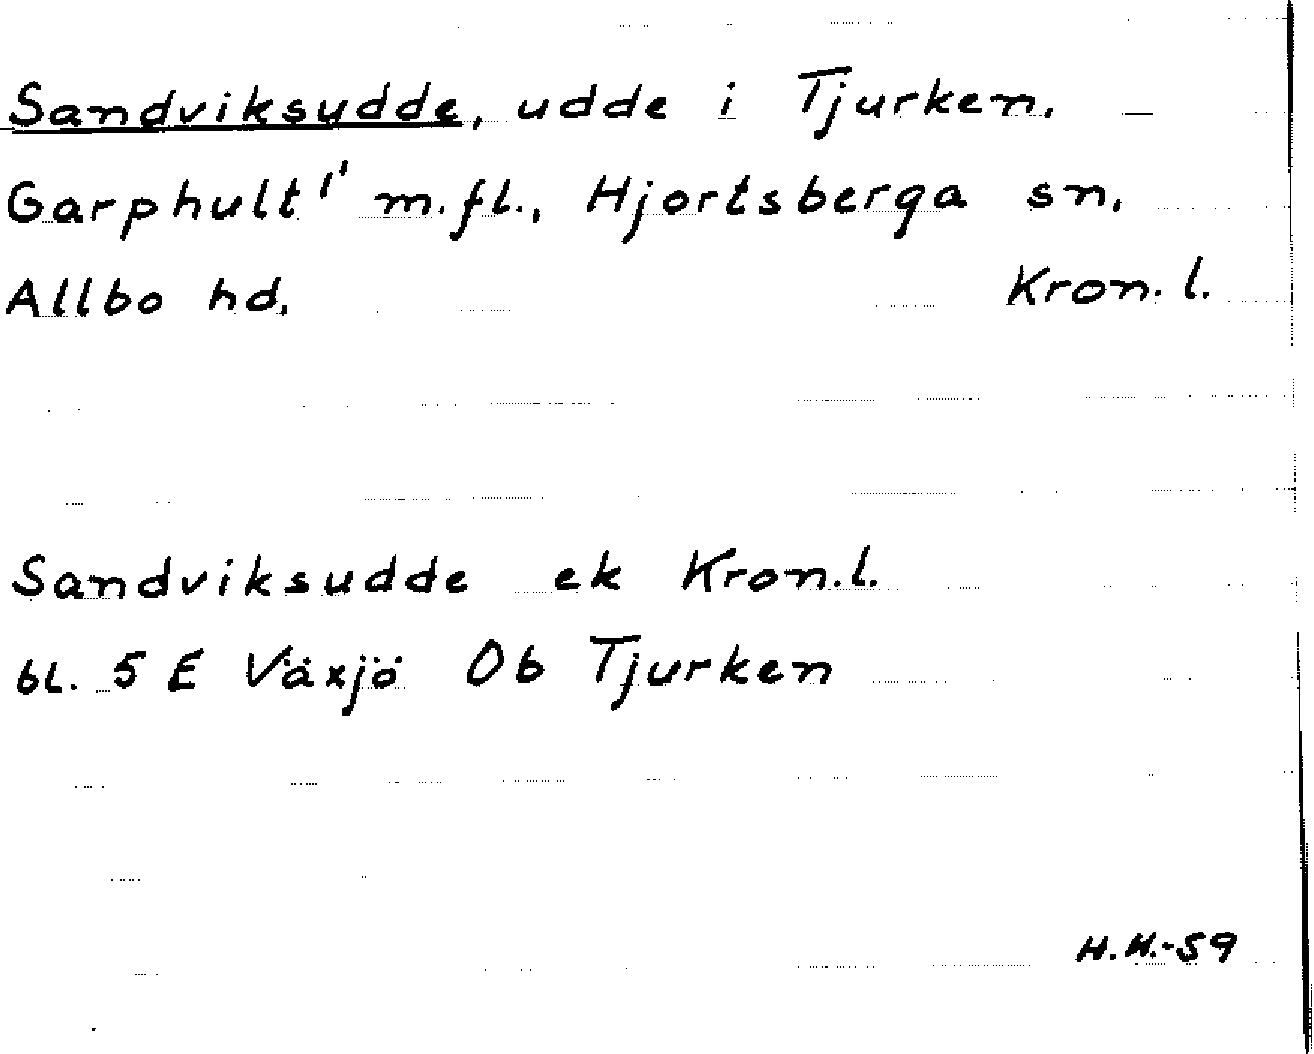 Sandviksudde, udde i Tjurken. —
Garphult 1¹ m.fl., Hjortsberga sn.
Allbo hd. Kron. l.
Sandviksudde ek Kron.l.
bl. 5 E Växjö Ob Tjurken
H.H.-59